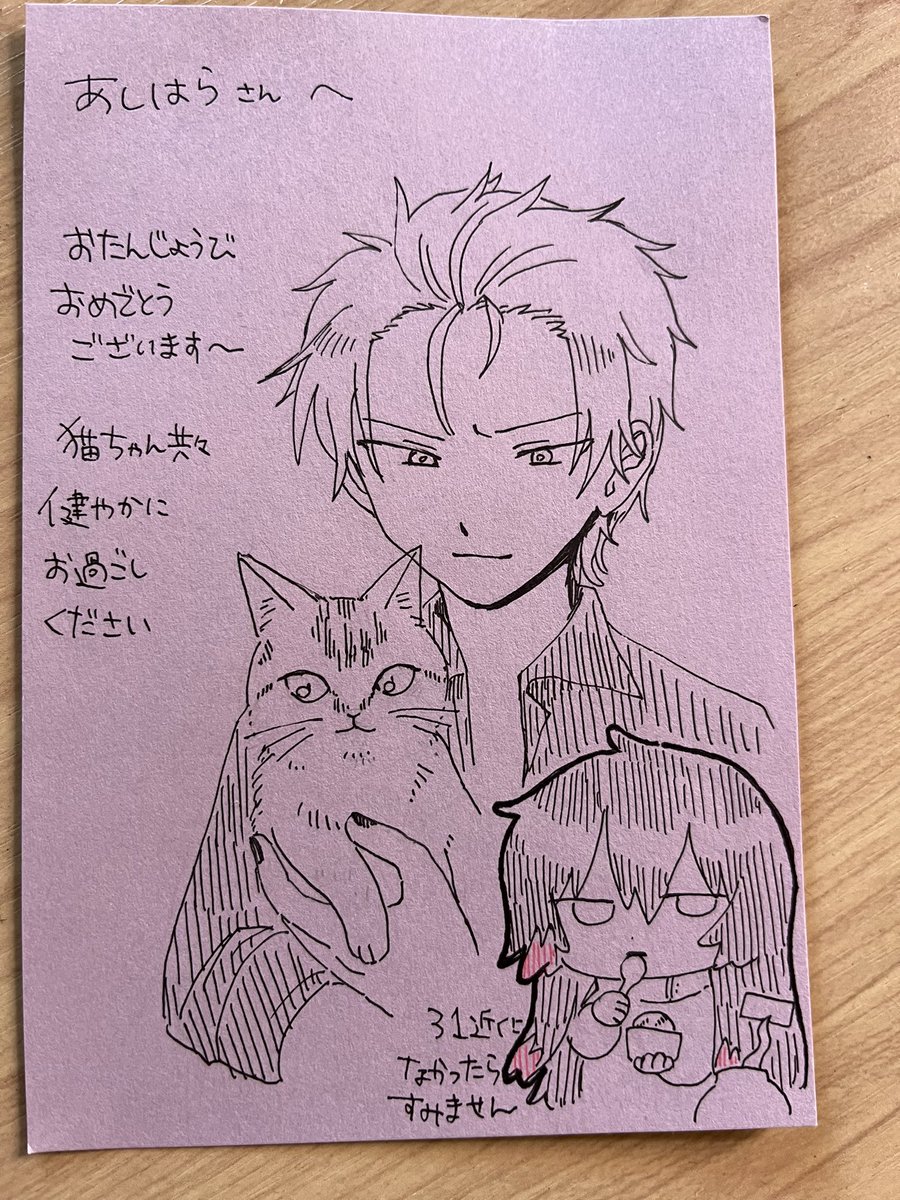 あしはらさんへ
おたんじょうび
おめでとう
ございます〜
猫ちゃん共々
健やかに
お過ごし
ください
31近くに
なかったら
すみません